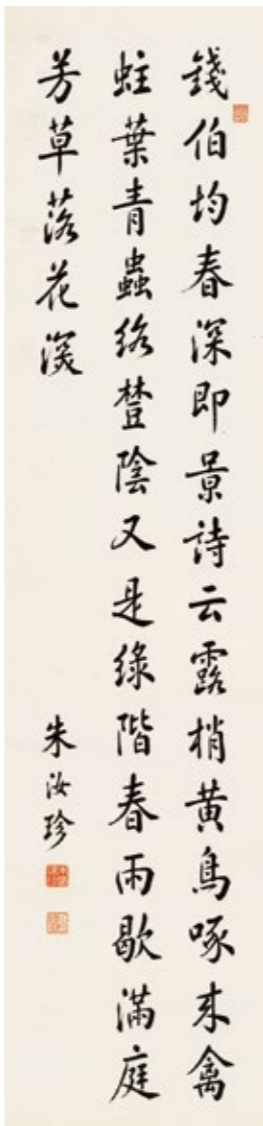 錢伯均春深即景詩云露梢黃鳥啄来禽
蛀葉青蟲絡陰又是綠階春雨歇滿庭
芳草落花深
朱汝珍